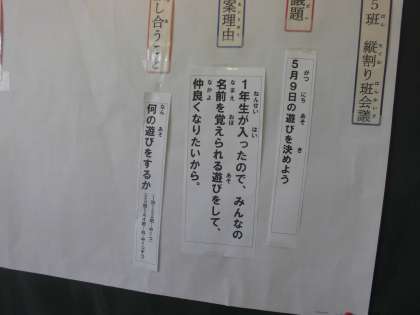 5班 縦割り班会議
議題
5月9日の遊びを決めよう
案理由
1年生が入ったので、みんなの
名前を覚えられる遊びをして、
仲良くなりたいから。
し合うこと
何の遊びをするか